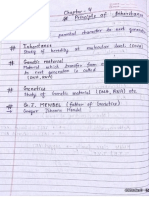 Chapter - 4
# Principle of Inheritance
parental character to next
# Inheritance
Study of heredity at molecular level (DNA)
# Genetic material
Material which transfer from
to next generation is called
(DNA, RNA)
# Genetics
Study of Genetic material (DNA, RNA) etc.
# G.J. MENDEL (Father of Genetics)
Gregor Johann Mendel